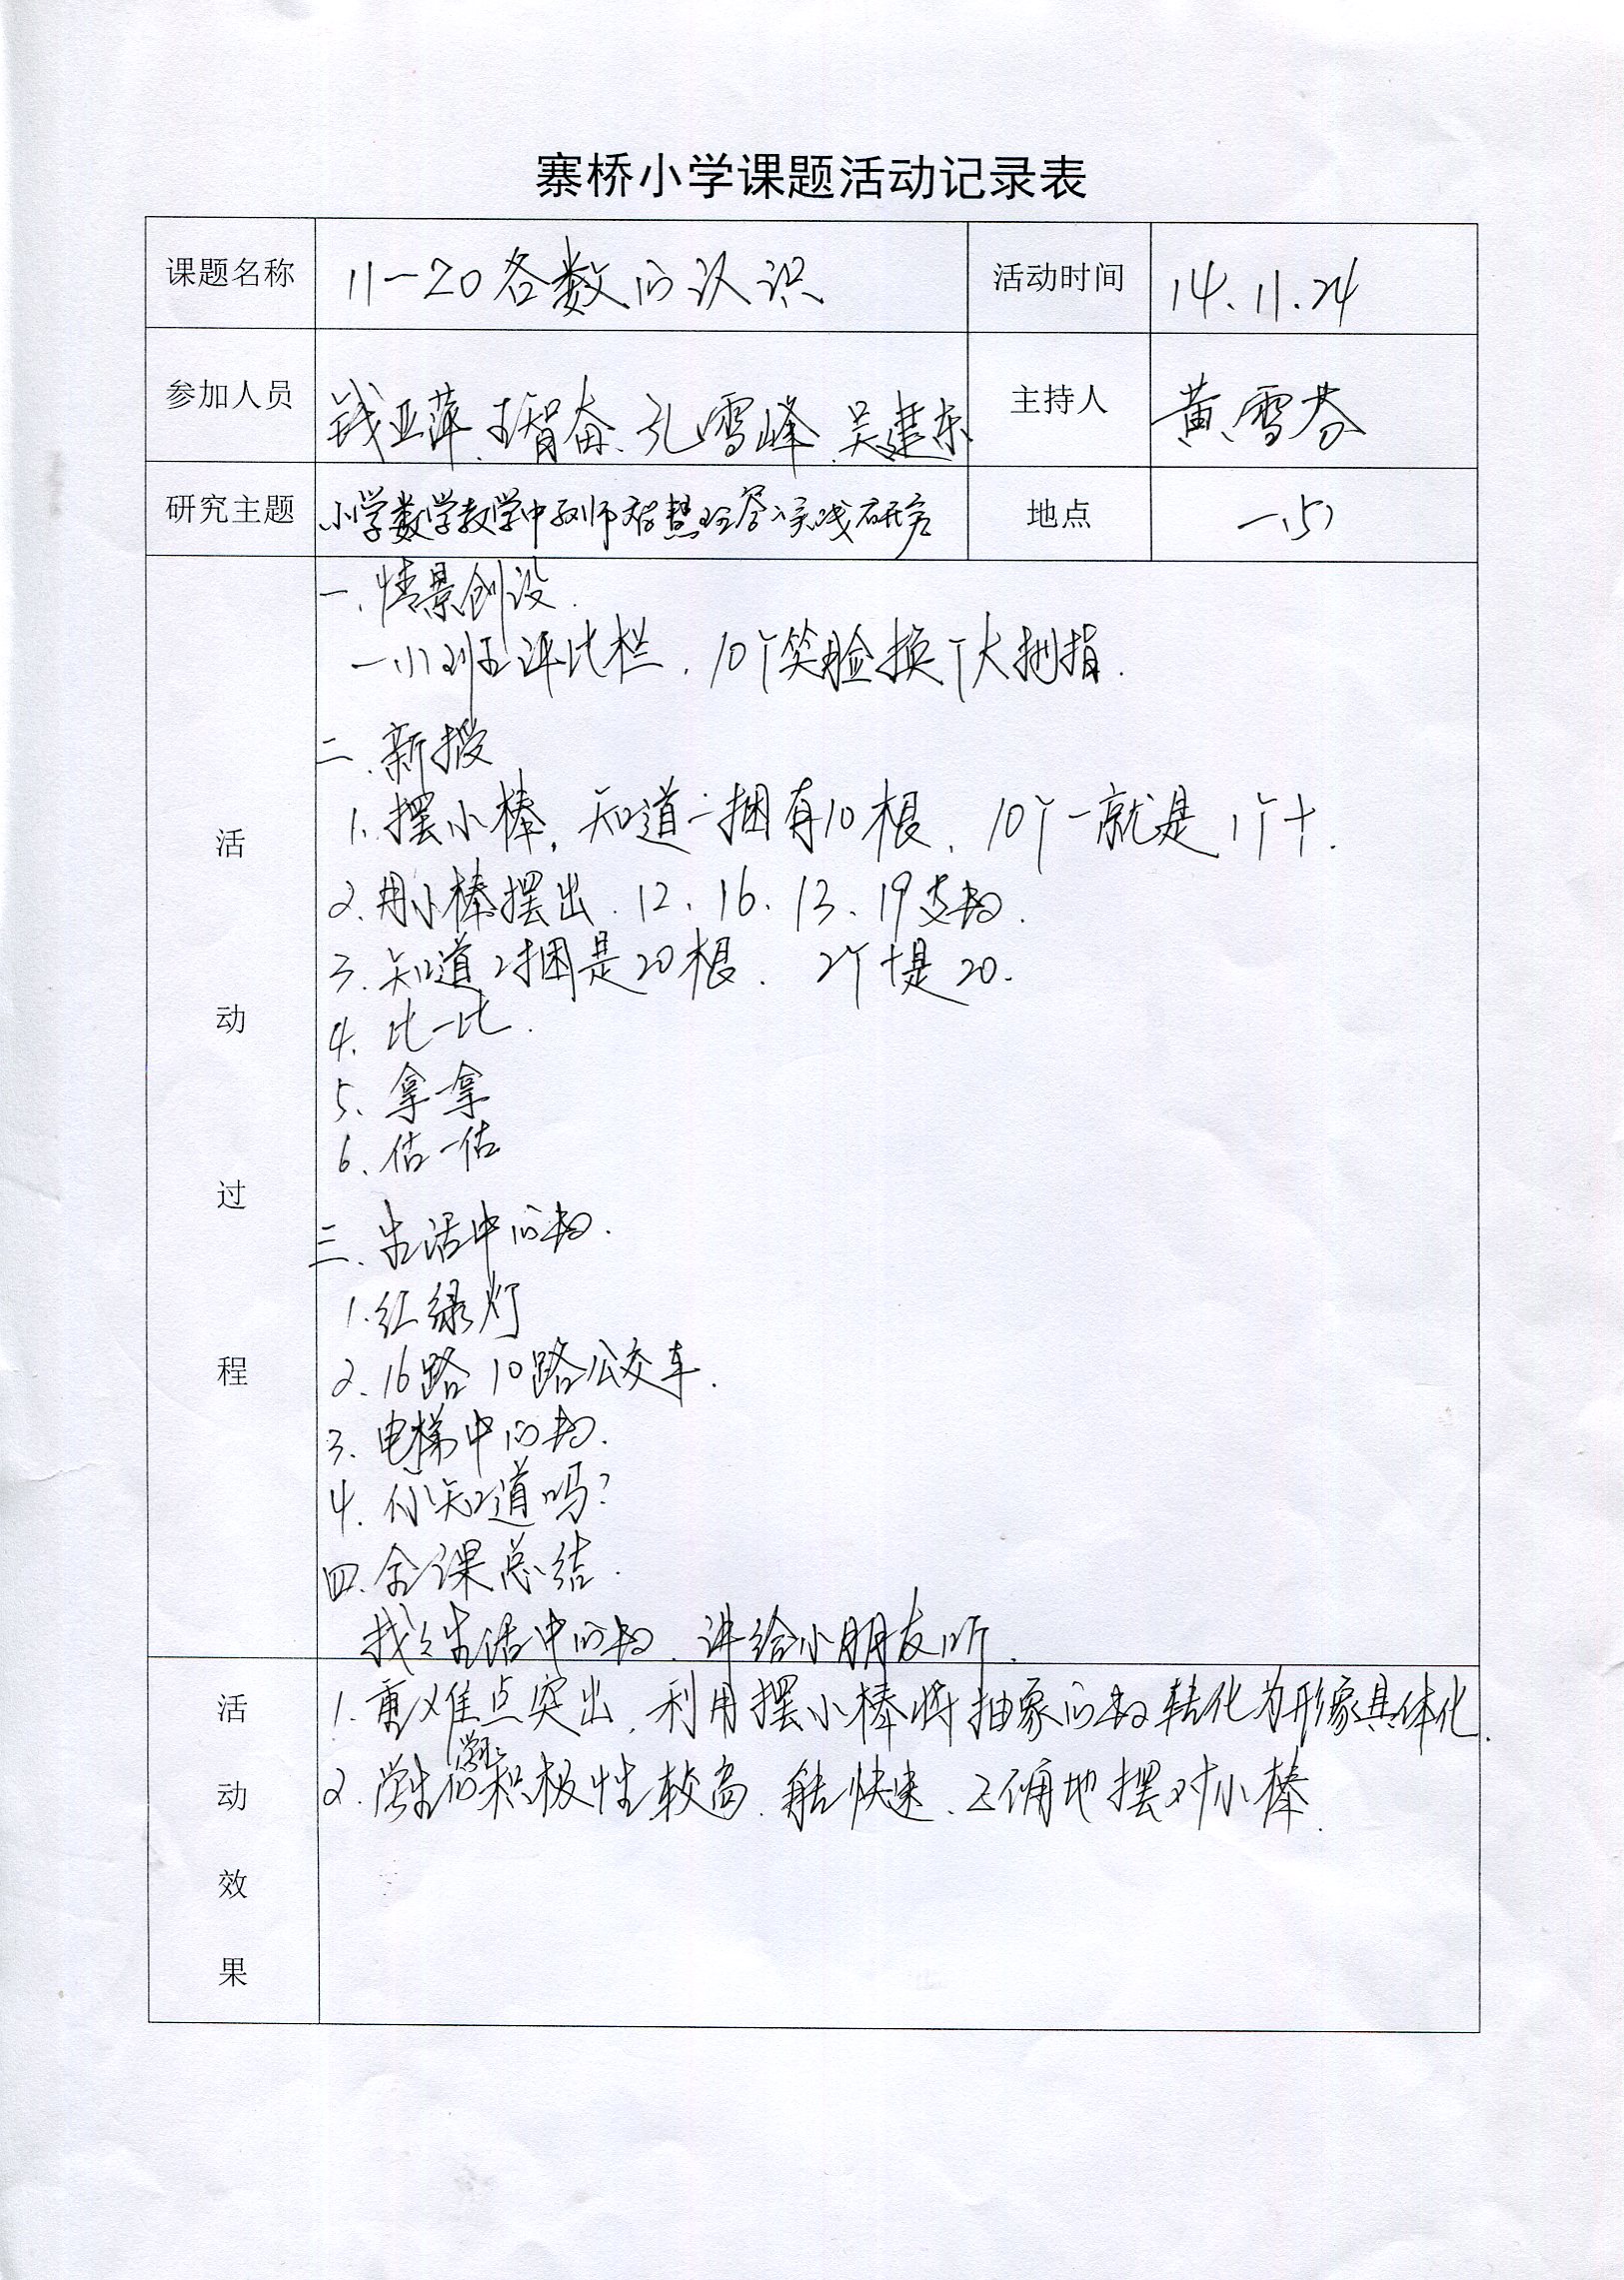 寨桥小学课题活动记录表
课题名称 11—20各数的认识 活动时间 14.11.24
参加人员 钱亚萍、王智奋、孔雪峰、吴建东 主持人 黄雪芬
研究主题 小学数学教学中教师智慧理答的实践研究 地点 一(5)
活动过程
一、情景创设.
一(1)班评比栏.10个笑脸换个大拇指.
二、新授
1.摆小棒,知道一捆有10根、10个一就是1个十.
2.用小棒摆出.12、16、13、19支数.
3.知道2捆是20根.2个十是20.
4.比一比.
5、拿一拿
6、估一估
三、生活中的数.
1.红绿灯
2.16路 10路公交车.
3.电梯中的数.
4.你知道吗?
四.全课总结.
找找生活中的数、讲给小朋友听.
活动效果
1.重难点突出,利用摆小棒将抽象的数转化为形象具体化.
2.学生学习的积极性较高.能快速、正确地摆对小棒.